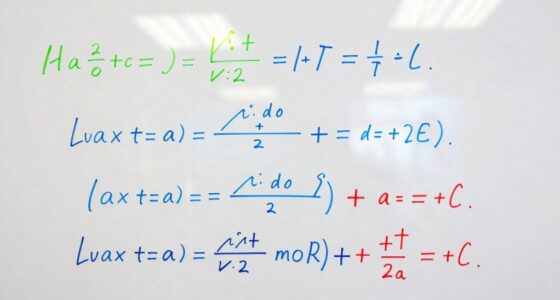 Ha 2/0 +c = ) = / V:2 = 1+T = 1/T ÷ C.
Lvax t=a) = i: do + / 2 + = d=+2E).
(ax t=a) = = i: do / 2 ) + a = = +C.
Lvax t=a) = / V·2 moR) + + ++ / 2a = +C.